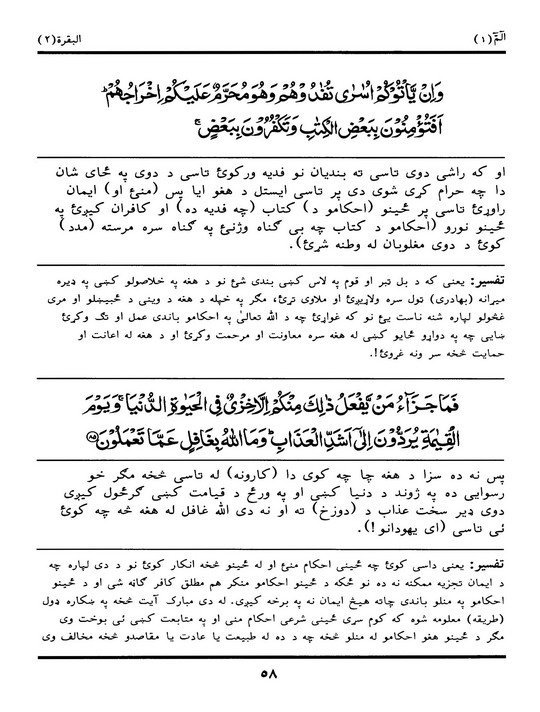 الٓمّٓ (۱)
البقرة (۲)
وَاِنْ يَّاْتُوْكُمْ اُسٰرٰى تُفٰدُوْهُمْ وَهُوَ مُحَرَّمٌ عَلَيْكُمْ اِخْرَاجُهُمْ ؕ
اَفَتُؤْمِنُوْنَ بِبَعْضِ الْكِتٰبِ وَتَكْفُرُوْنَ بِبَعْضٍ ۚ
او که راشي دوی تاسې ته بنديان نو فديه ورکوئ تاسې د دوی په ځای شان
دا چه حرام کړی شوی دی پر تاسې ايستل د هغو ايا پس (منئ او) ايمان
راوړئ تاسې پر ځينو (احکامو د) کتاب (چه فديه ده) او کافران کيږئ په
ځينو نورو (احکامو د کتاب چه بې گناه وژنئ په گناه سره مرسته (مدد)
کوئ د دوی مغلوبان له وطنه شړئ).
تفسير: يعنې که د بل تبر او قوم په لاس کښې بندي شئ نو د هغه په خلاصولو کښې په ډيره
ميړانه (بهادرۍ) تول سره ولاړيږئ او ملاوی تړئ، مگر په خپله د هغه د وينې د څښلو او مری
غڅولو لپاره شنه ناست يئ نو که غواړئ چه د الله تعالیٰ په احکامو باندې عمل او تگ وکړئ
ښايي چه په دواړو ځايو کښې له هغه سره معاونت او مرحمت وکړئ او د هغه له اعانت او
حمايت څخه سر ونه غړوئ!.
فَمَا جَزَآءُ مَنْ يَّفْعَلُ ذٰلِكَ مِنْكُمْ اِلَّا خِزْىٌ فِى الْحَيٰوةِ الدُّنْيَا ۚ وَيَوْمَ
الْقِيٰمَةِ يُرَدُّوْنَ اِلٰٓى اَشَدِّ الْعَذَابِ ؕ وَمَا اللّٰهُ بِغَافِلٍ عَمَّا تَعْمَلُوْنَ ﴿۸۵﴾
پس نه ده سزا د هغه چا چه کوی دا (کارونه) له تاسې څخه مگر خو
رسوايي ده په ژوند د دنيا کښې او په ورځ د قيامت کښې گرځول کيږي
دوی ډير سخت عذاب د (دوزخ) ته او نه دی الله غافل له هغه څه چه کوئ
ئې تاسې (ای يهودانو!).
تفسير: يعنې داسې کوئ چه ځينې احکام منئ او له ځينو څخه انکار کوئ نو د دې لپاره چه
د ايمان تجزيه ممکنه نه ده نو ځکه د ځينو احکامو منکر هم مطلق کافر گڼه شي او د ځينو
احکامو په منلو باندې چاته هيڅ ايمان نه په برخه کيږي. له دې مبارک آيت څخه په ښکاره ډول
(طريقه) معلومه شوه که کوم سړی ځينې شرعي احکام مني او په متابعت کښې ئې بوخت وي
مگر د ځينو هغو احکامو له منلو څخه چه د ده له طبيعت يا عادت يا مقاصدو څخه مخالف وي
۵۸